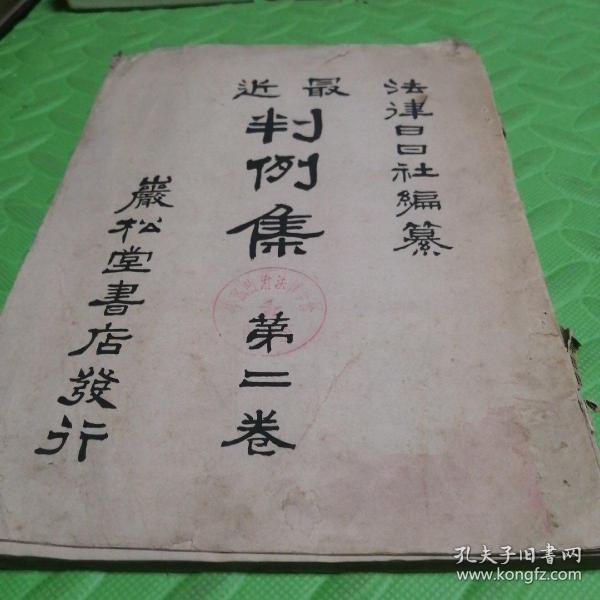 法律日日社編纂
最近
判例集
第二卷
巖松堂書店發行
孔夫子旧书网
www.kongfz.com